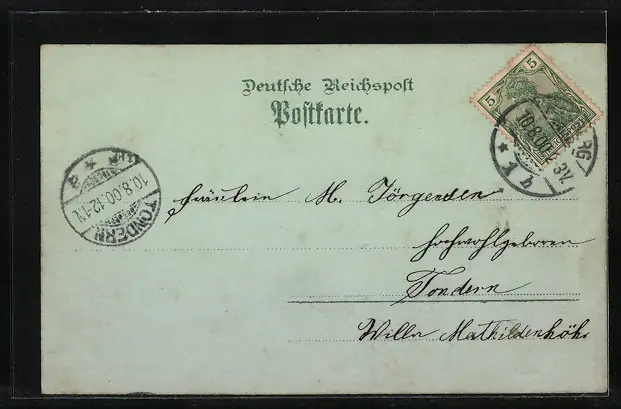 Deutsche Reichspost
Postkarte.
5
5
10.8.00. 3V
* 1 b
10.8.00.12-1N
TONDERN
Fräulein M. Jörgensen
hochwohlgeboren
Tondern
Villa Mathildenhöhe